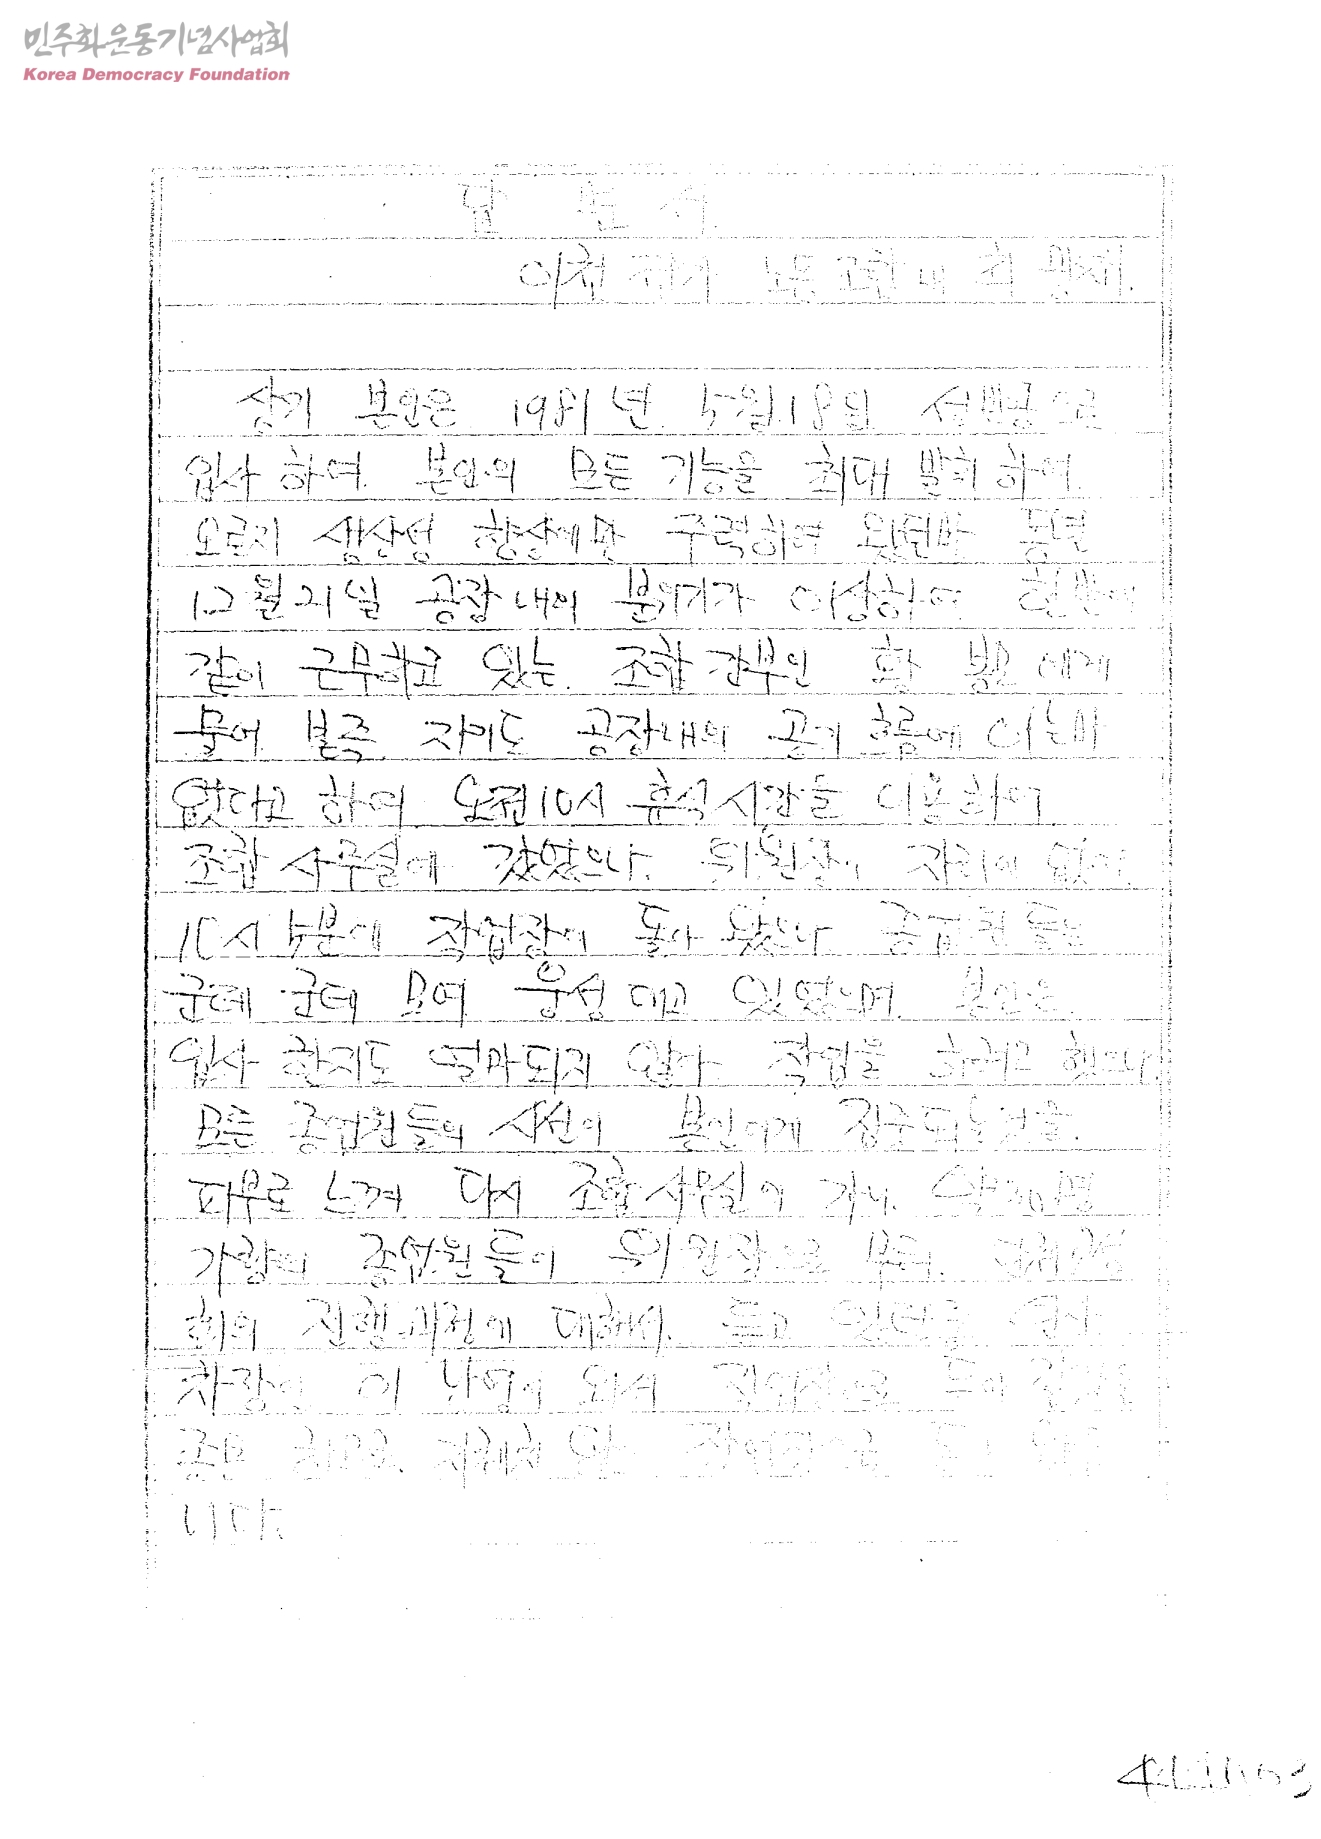 민주화운동기념사업회
Korea Democracy Foundation
답 변 서.
이천 전기 노동조합내 최
상기 본인은 1981년 5월 18일 선반공으로
입사 하여 본인의 모든 기능을 최대 발휘 하여
오로지 생산성 향상에만 주력하여 왔던바 동년
12월 21일 공장 내의 분위기가 이상하여 현반에
같이 근무하고 있는 조합 간부인 황 에게
물어 본즉 자기도 공장내의 공기 흐름에 아는바
없다고 하여 오전10시 휴식 시간을 이용하여
조합 사무실에 갔었으나 위원장이 자리에 없어
10시 5분에 작업장에 돌아 왔으나 종업원들은
군데 군데 모여 웅성 대고 있었으며 본인은
입사 한지도 얼마되지 않아 작업을 하려고 했으나
모든 종업원들의 시선이 본인에게 집중되는것을
피부로 느껴 다시 조합 사무실에 가니 약 명
가량의 종업원들이 위원장으로 부터
회의 진행과정에 대해서 듣고 있던중
차장이 이 와서 작업장으로
작업장으로
니다.